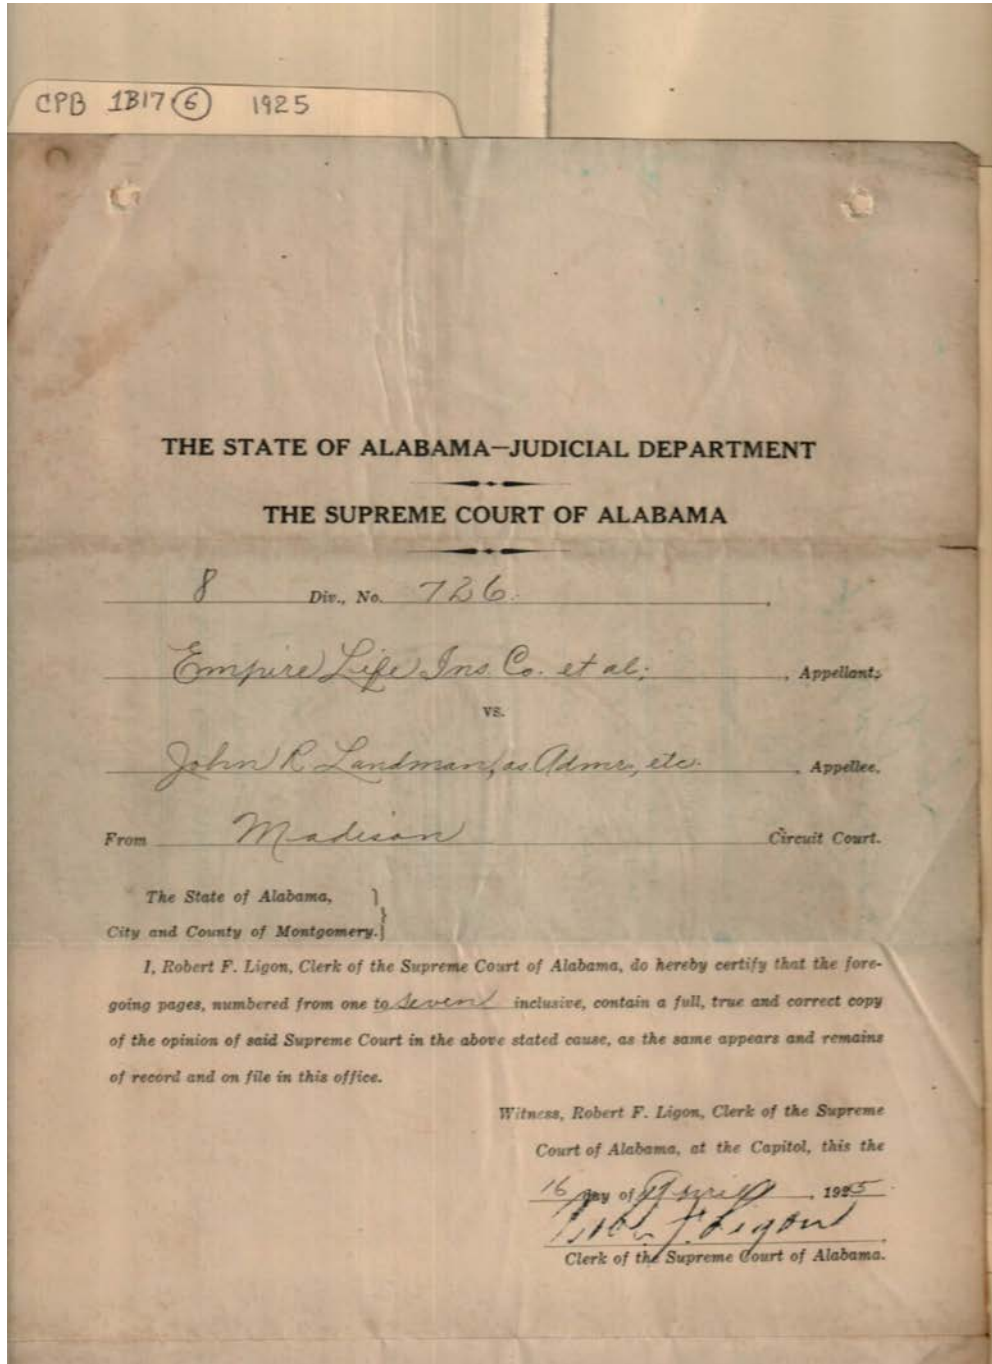 CPB 1B17 6 1925
THE STATE OF ALABAMA—JUDICIAL DEPARTMENT
THE SUPREME COURT OF ALABAMA
8 Div., No. 726.
Empire Life Ins. Co. et al; , Appellants
vs.
John R. Landman, as Admr., etc. , Appellee,
From Madison Circuit Court.
The State of Alabama, }
City and County of Montgomery. }
I, Robert F. Ligon, Clerk of the Supreme Court of Alabama, do hereby certify that the fore-
going pages, numbered from one to seven inclusive, contain a full, true and correct copy
of the opinion of said Supreme Court in the above stated cause, as the same appears and remains
of record and on file in this office.
Witness, Robert F. Ligon, Clerk of the Supreme
Court of Alabama, at the Capitol, this the
16 day of April , 1925
Robt. F. Ligon
Clerk of the Supreme Court of Alabama.